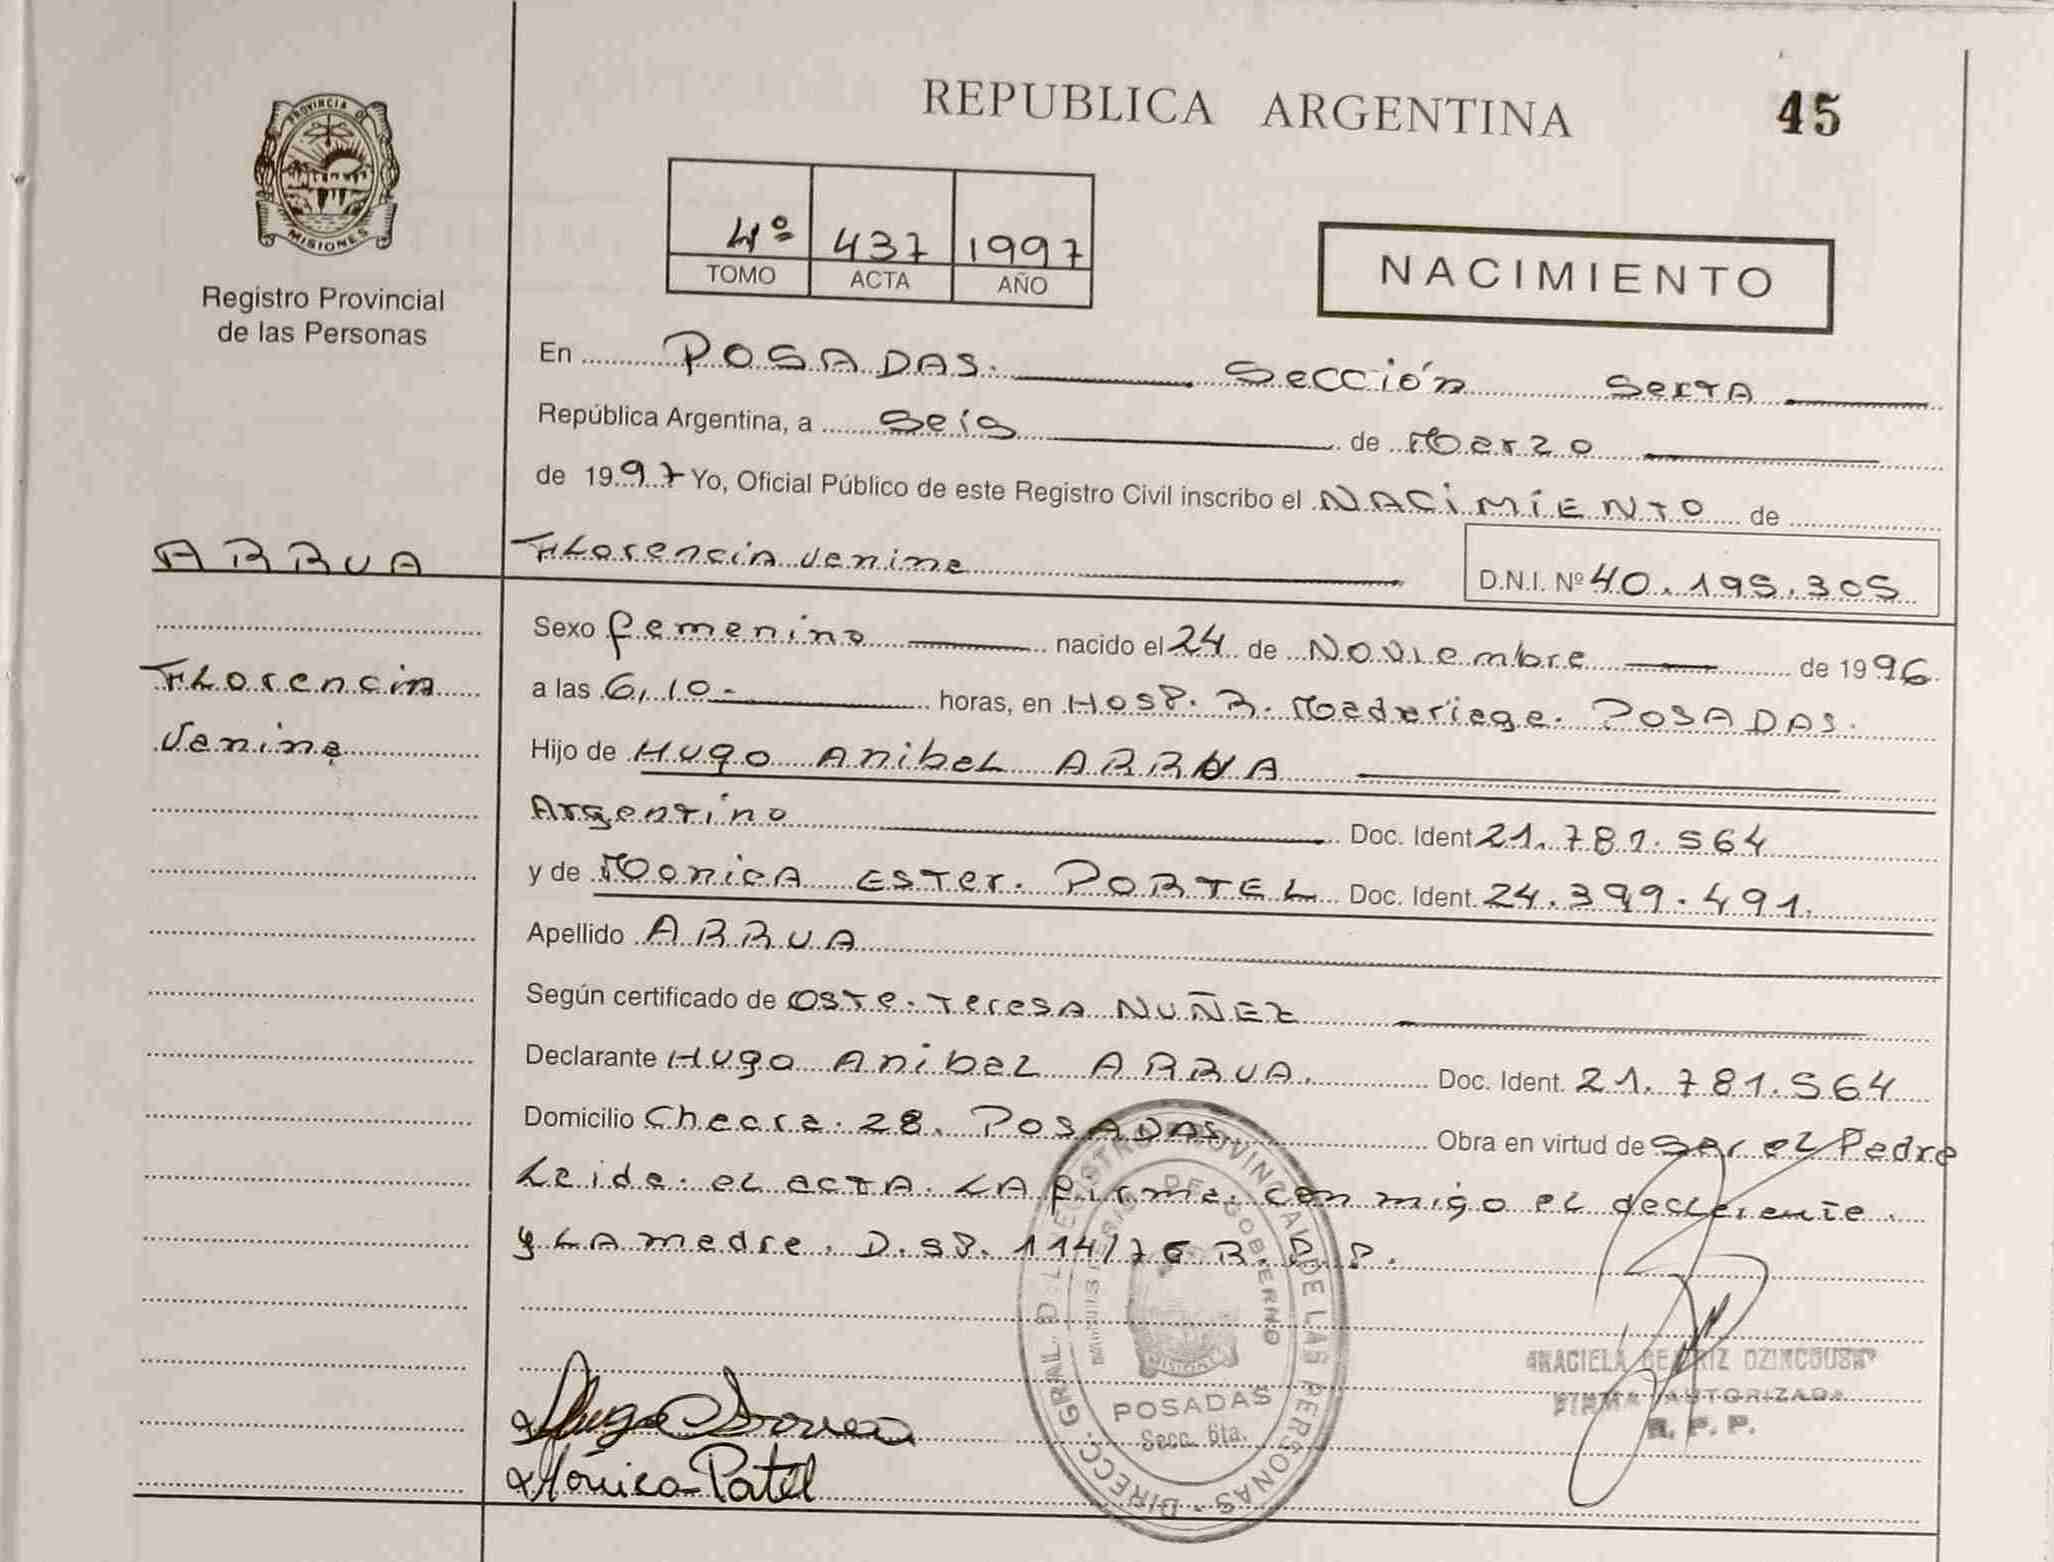 REPUBLICA ARGENTINA
45
PROVINCIA DE
MISIONES
Registro Provincial
de las Personas
4º 437 1997
TOMO ACTA AÑO
NACIMIENTO
En POSADAS. Sección Sexta
República Argentina, a Seis de Marzo
de 1997 Yo, Oficial Público de este Registro Civil inscribo el NACIMIENTO de
ARRUA
Florencia Janina
D.N.I. Nº 40.195.305
Florencia
Janina
Sexo femenino nacido el 24 de Noviembre de 1996
a las 6,10- horas, en Hosp. R. Madariaga. POSADAS.
Hijo de Hugo Anibal ARRUA
Argentino Doc. Ident 21.781.564
y de Monica Ester. PORTEL Doc. Ident. 24.399.491.
Apellido ARRUA
Según certificado de Oste. Teresa NUÑEZ
Declarante Hugo Anibal ARRUA. Doc. Ident. 21.781.564
Domicilio Chacra. 28. POSADAS. Obra en virtud de Ser el Padre
Leida. el acta. LA firma. con migo el declarante.
y LA madre. D. SP. 114/76 R.P.P.
DIRECC. GRAL. DEL REGISTRO PROVINCIAL DE LAS PERSONAS
MINISTERIO DE GOBIERNO
MISIONES
POSADAS
Secc. 6ta.
GRACIELA BEATRIZ
FIRMA AUTORIZADA
R. P. P.
Hugo
Mónica